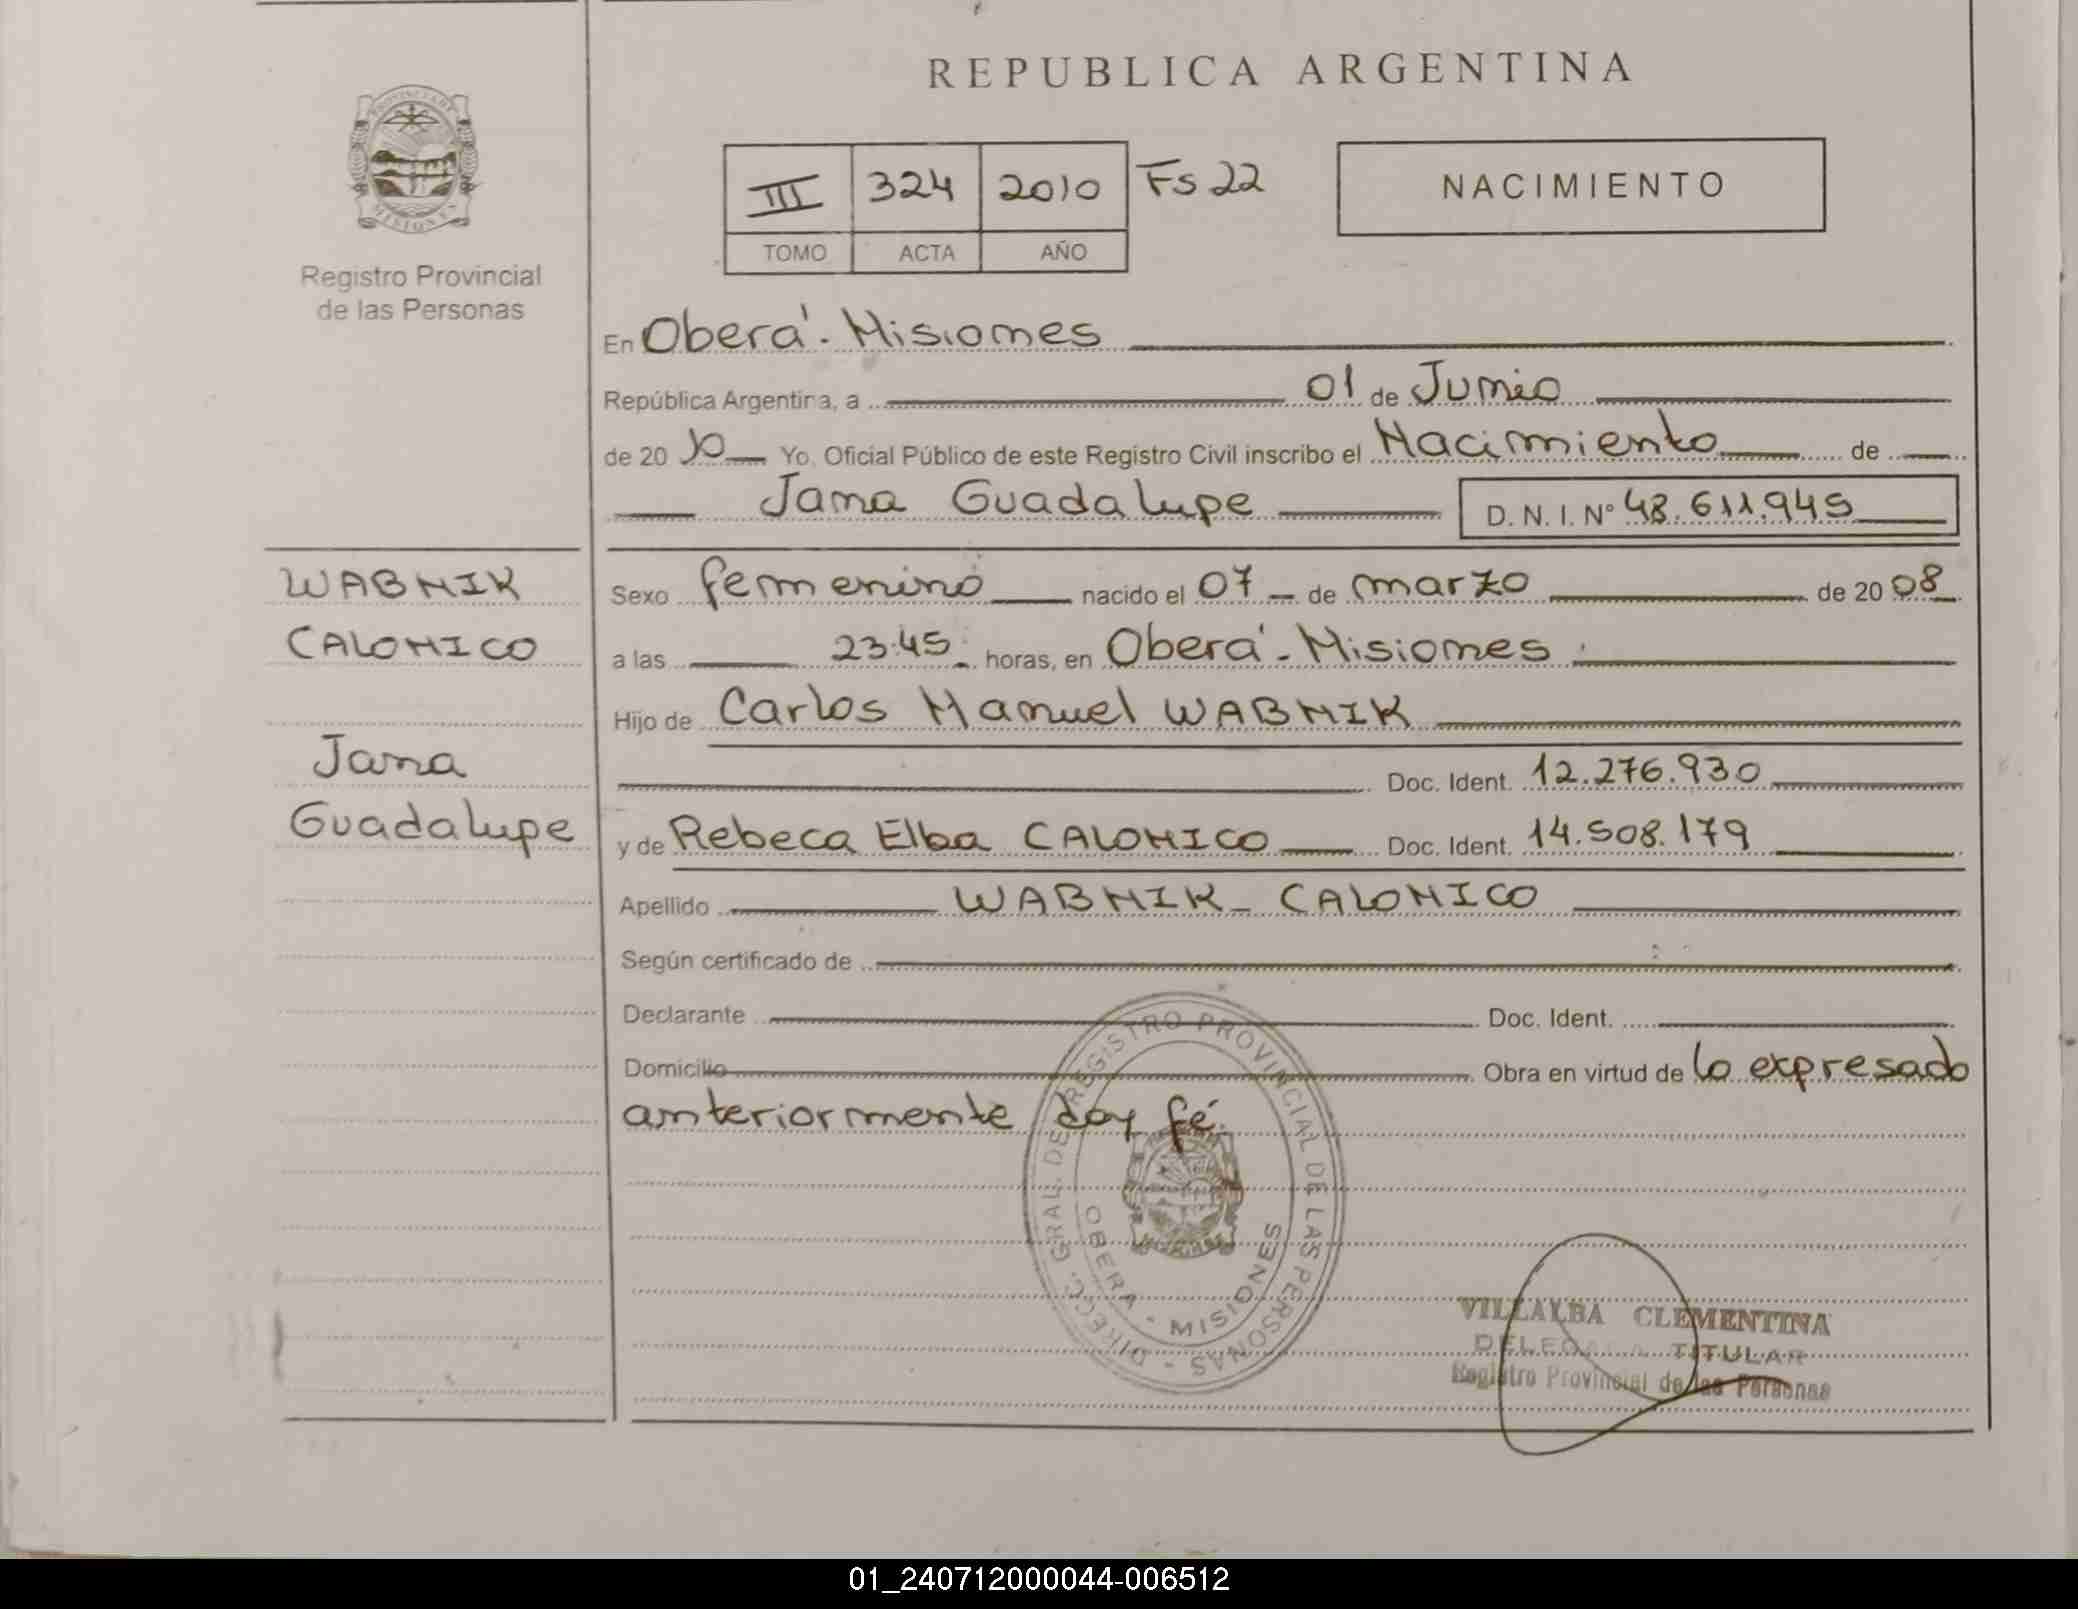 REPUBLICA ARGENTINA
PROVINCIA DE MISIONES
Registro Provincial
de las Personas
III 324 2010 Fs 22
TOMO ACTA AÑO
NACIMIENTO
En Oberá - Misiones
República Argentina, a 01 de Junio
de 20 10 Yo, Oficial Público de este Registro Civil inscribo el Nacimiento de
Jana Guadalupe D. N. I. Nº 48.611.945
WABNIK
CALONICO
Jana
Guadalupe
Sexo femenino nacido el 07 de marzo de 20 08
a las 23:45 horas, en Oberá - Misiones
Hijo de Carlos Manuel WABNIK
Doc. Ident. 12.276.930
y de Rebeca Elba CALONICO Doc. Ident. 14.508.179
Apellido WABNIK - CALONICO
Según certificado de
Declarante Doc. Ident.
Domicilio Obra en virtud de lo expresado
anteriormente doy fé.
DIRECC. GRAL. DE REGISTRO PROVINCIAL DE LAS PERSONAS -
OBERA - MISIONES
VILLALBA CLEMENTINA
DELEGADA TITULAR
Registro Provincial de las Personas
01_240712000044-006512